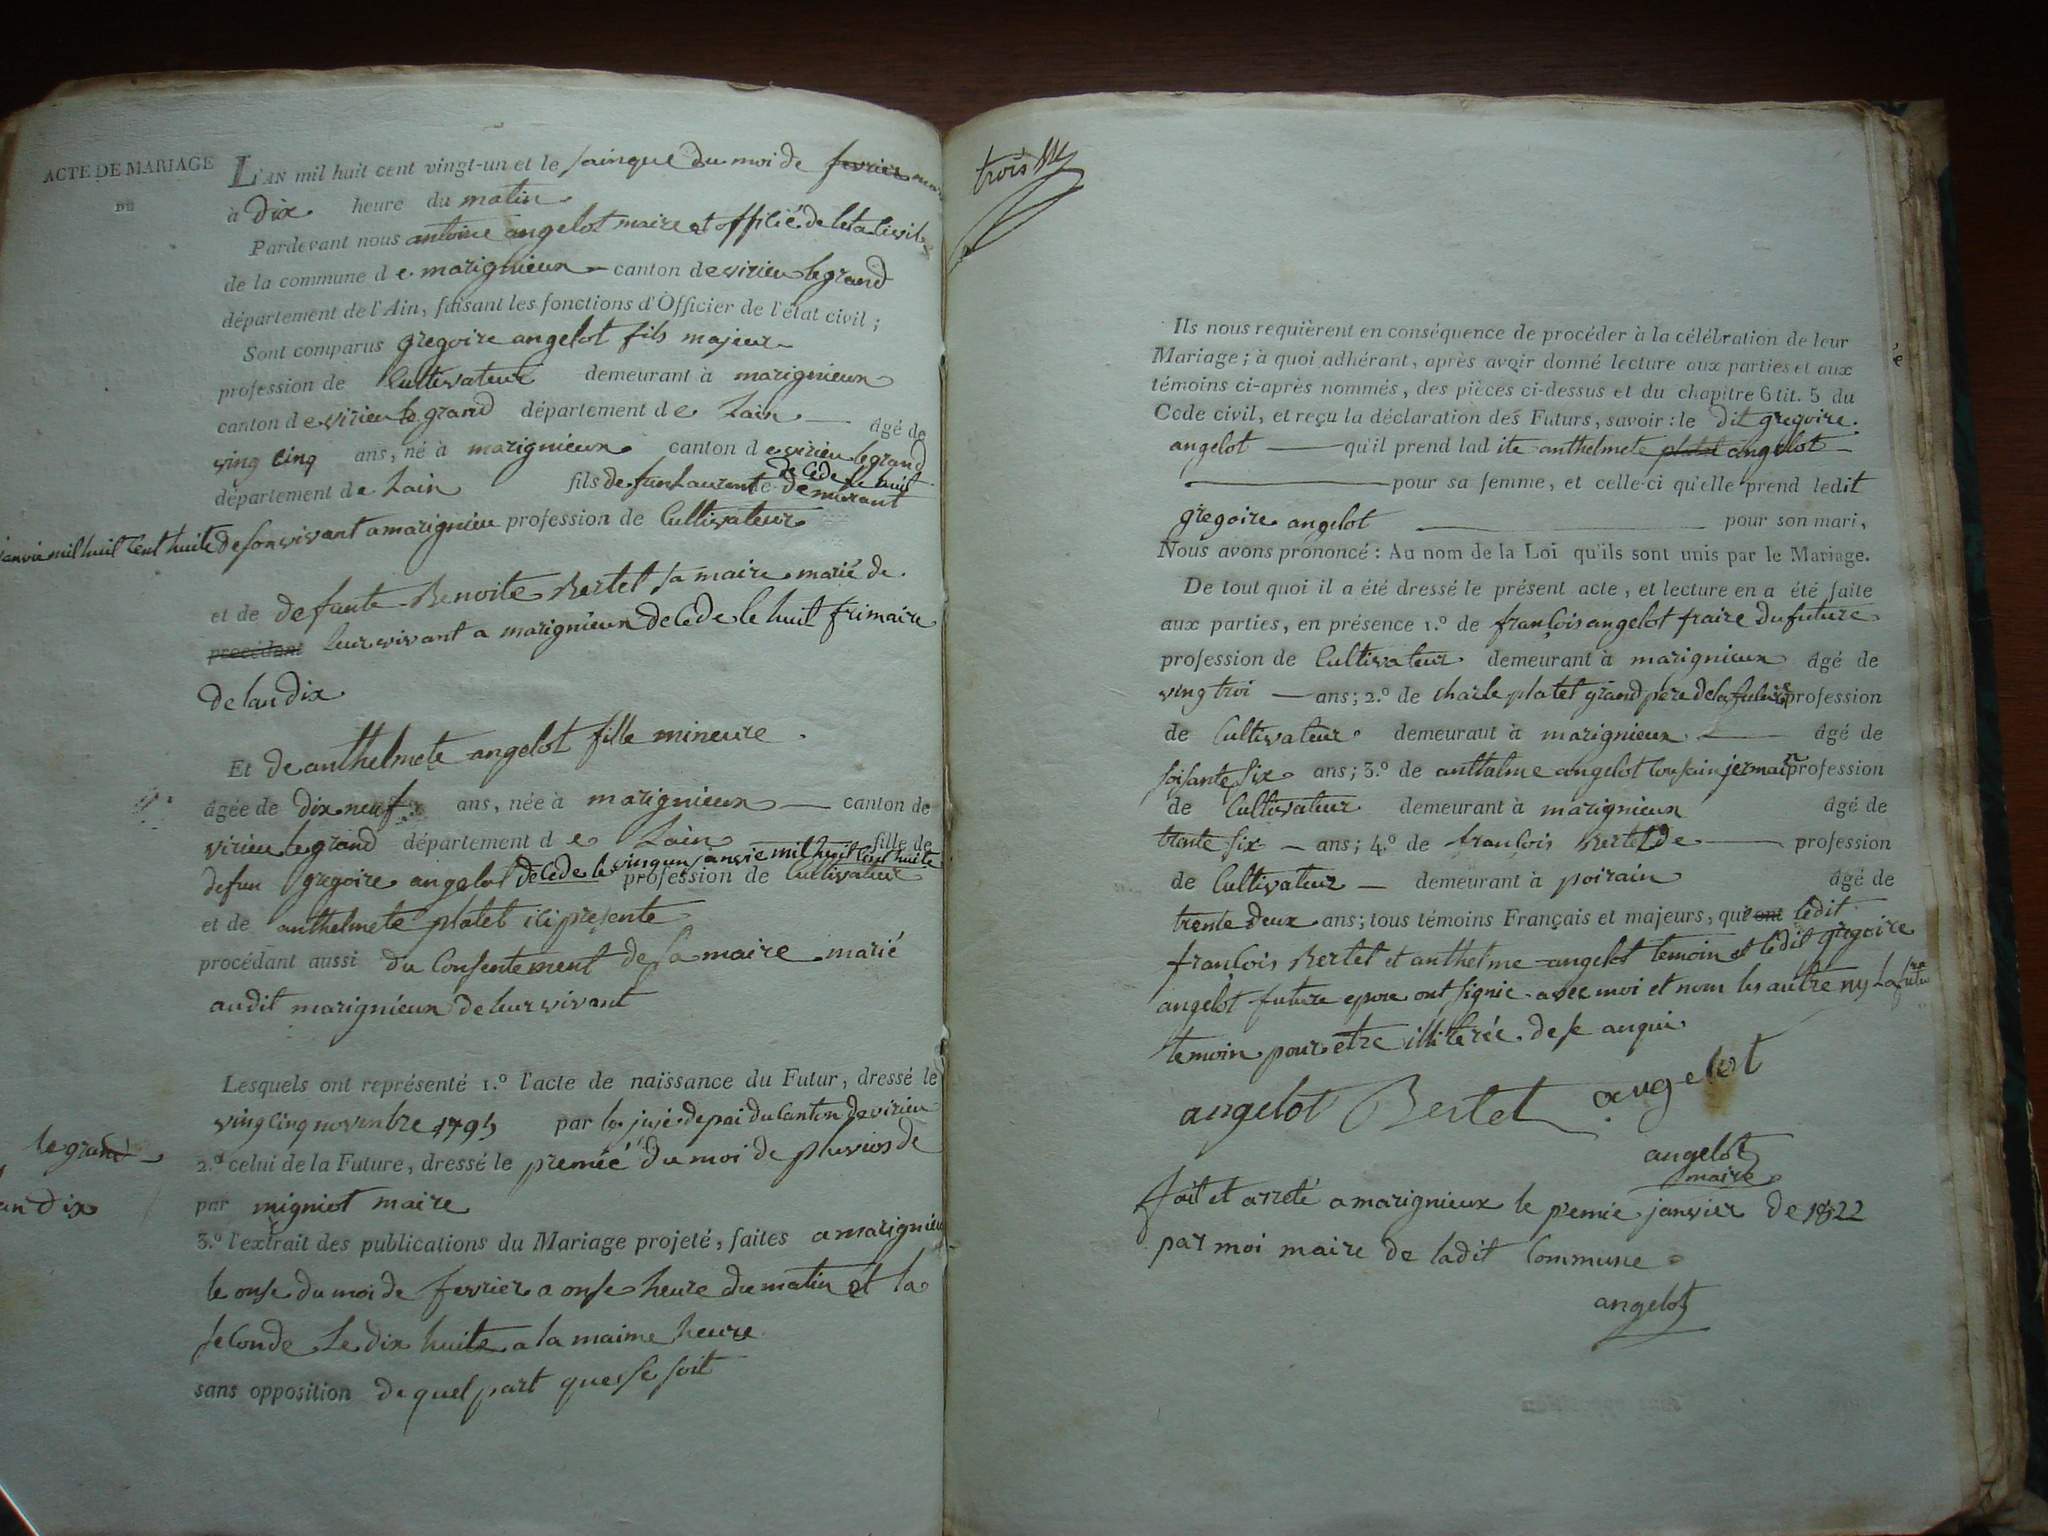 ACTE DE MARIAGE
DE
L'AN mil huit cent vingt-un et le sainque du moi de fevrier mar
à Dix heure du matin
Pardevant nous antoine angelot maire et officié de leta civil
de la commune de marignieux canton de virieu le grand
département de l'Ain, faisant les fonctions d'Officier de l'état civil ;
Sont comparus gregoire angelot fils majeur
profession de Cultivateur demeurant à marignieux
canton de virieu le grand département de Lain âgé de
ving cinq ans, né à marignieux canton de virieu le grand
département de Lain fils de fun Laurent decede le huit demeurant
janvié mil huit cent huite de son vivant a marignieu profession de Cultivateur
et de defante Benoite Bertet sa maire marié de
precédant leur vivant a marignieux decede le huit frimaire
de lan dix
Et de anthelmete angelot fille mineure
âgée de dix neuf ans, née à marignieux canton de
virieu le grand département de Lain fille de
defun gregoire angelot decede le vingun janvié mil huit cent huite profession de Cultivateur
et de anthelmete platet ici presente
procédant aussi du Consentement de sa maire marié
audit marignieux de leur vivant
Lesquels ont représenté 1.º l'acte de naissance du Futur, dressé le
ving cinq novembre 1795 par le jujé de pai du Canton de virieu
le grand
2.º celui de la Future, dressé le premié du moi de pluvios de
an dix
par migniot maire
3.º l'extrait des publications du Mariage projeté, faites a marignieu
le onse du moi de fevrier a onse heure du matin et la
seconde Le dix huite a la maime heure
sans opposition de quel part que se soit
trois
Ils nous requièrent en conséquence de procéder à la célébration de leur
Mariage ; à quoi adhérant, après avoir donné lecture aux parties et aux
témoins ci-après nommés, des pièces ci-dessus et du chapitre 6 tit. 5 du
Code civil, et reçu la déclaration des Futurs, savoir : le dit gregoire
angelot qu'il prend ladite anthelmete platet angelot
pour sa femme, et celle-ci qu'elle prend ledit
gregoire angelot pour son mari,
Nous avons prononcé : Au nom de la Loi qu'ils sont unis par le Mariage.
De tout quoi il a été dressé le présent acte, et lecture en a été faite
aux parties, en présence 1.º de françois angelot fraire du future
profession de Cultivateur demeurant à marignieux âgé de
ving troi ans ; 2.º de charle platet grand pere de la future profession
de Cultivateur demeurant à marignieux âgé de
soisante six ans ; 3.º de anthalme angelot cousain jermain profession
de Cultivateur demeurant à marignieux âgé de
trante six ans ; 4.º de françois Bertet de profession
de Cultivateur demeurant à poirain âgé de
trente deux ans ; tous témoins Français et majeurs, qui ont ledit
francois Bertet et anthelme angelot temoin et ledit gregoire
angelot future epoux ont signié avec moi et nom les autre ny La futu
temoin pour etre illiterée de se anquis
angelot Bertet angelot
angelot
maire
fait et arreté a marignieux le premie janvier de 1822
par moi maire de ladit Commune
angelot